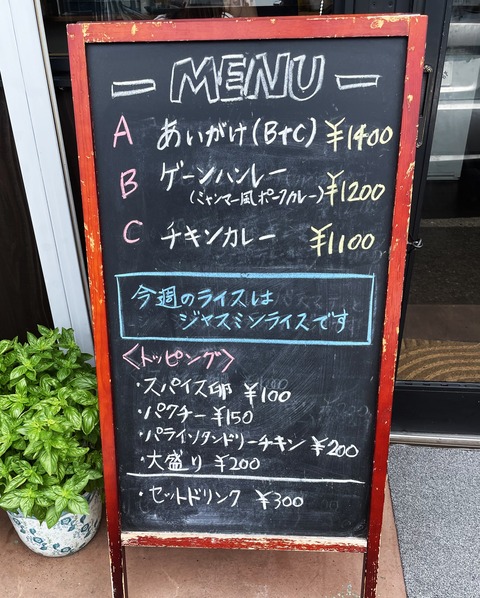 — MENU —
A あいがけ(B+C) ¥1400
B ゲーンハンレー
(ミャンマー風ポークカレー) ¥1200
C チキンカレー ¥1100
今週のライスは
ジャスミンライスです
〈トッピング〉
・スパイス卵 ¥100
・パクチー ¥150
・パラインタンドリーチキン ¥200
・大盛り ¥200
・セットドリンク ¥300